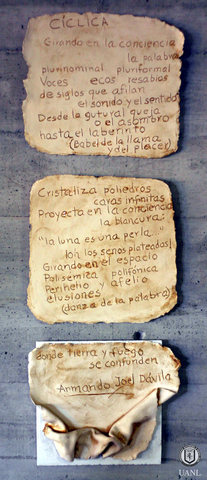 CÍCLICA
Girando en la conciencia
la palabra
plurinominal pluriformal
Voces ecos resabios
de siglos que afilan
el sonido y el sentido
Desde la gutural que ja
o el asombro
hasta el laberinto
(Babel de la llama
y del placer)
Cristaliza poliedros
caras infinitas
Proyecta en la conciencia
la blancura:
"la luna es una perla..."
(on los senos plateados)
Girando en el espacio
Polisemiza polifónica
Perihelio y afelio
elusiones
(danza de la palabra)
donde tierra y fuego
se confunden
Armando Joel Dávila
UANL